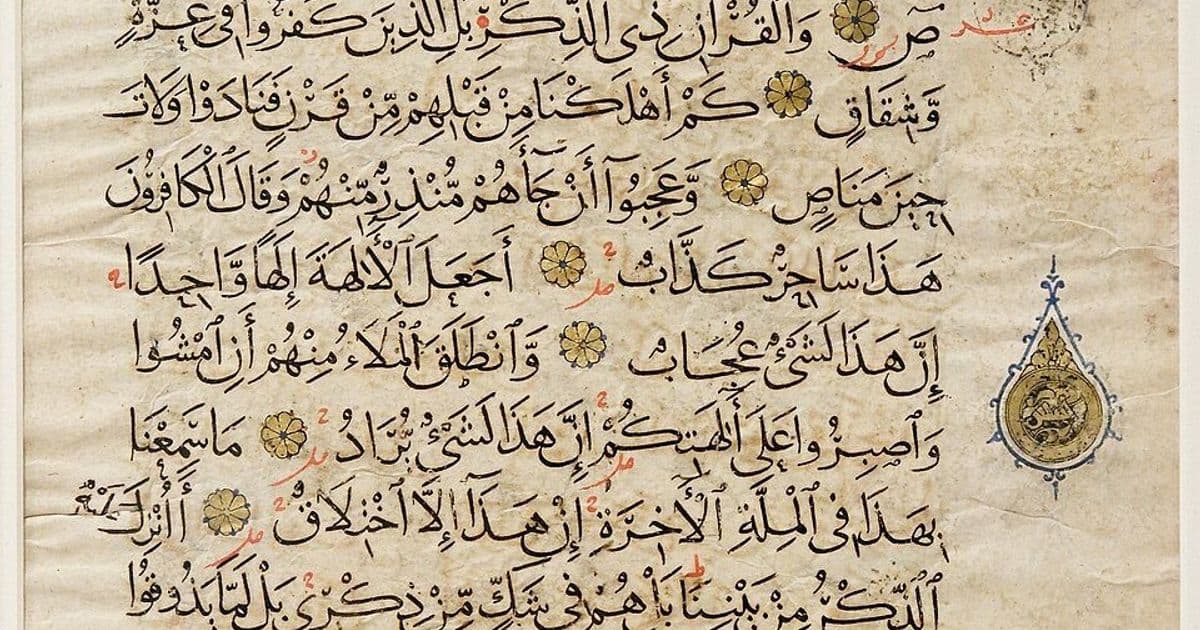 صٓ وَالْقُرْآنِ ذِي الذِّكْرِ بَلِ الَّذِينَ كَفَرُوا فِي عِزَّةٍ
وَّشِقَاقٍ كَمْ أَهْلَكْنَا مِنْ قَبْلِهِمْ مِّنْ قَرْنٍ فَنَادَوْا وَلَاتَ
حِينَ مَنَاصٍ وَّعَجِبُوٓا أَنْ جَآءَهُمْ مُّنْذِرٌ مِّنْهُمْ وَقَالَ الْكَافِرُونَ
هَذَا سَاحِرٌ كَذَّابٌ أَجَعَلَ الْآلِهَةَ إِلَهًا وَّاحِدًا
إِنَّ هَذَا لَشَيْءٌ عُجَابٌ وَّانْطَلَقَ الْمَلَأُ مِنْهُمْ أَنِ امْشُوا
وَاصْبِرُوا عَلَى آلِهَتِكُمْ إِنَّ هَذَا لَشَيْءٌ يُّرَادُ مَا سَمِعْنَا
بِهَذَا فِي الْمِلَّةِ الْآخِرَةِ إِنْ هَذَآ إِلَّا اخْتِلَاقٌ أَأُنْزِلَ عَلَيْهِ
الذِّكْرُ مِنْ بَيْنِنَا بَلْ هُمْ فِي شَكٍّ مِّنْ ذِكْرِي بَلْ لَمَّا يَذُوقُوا